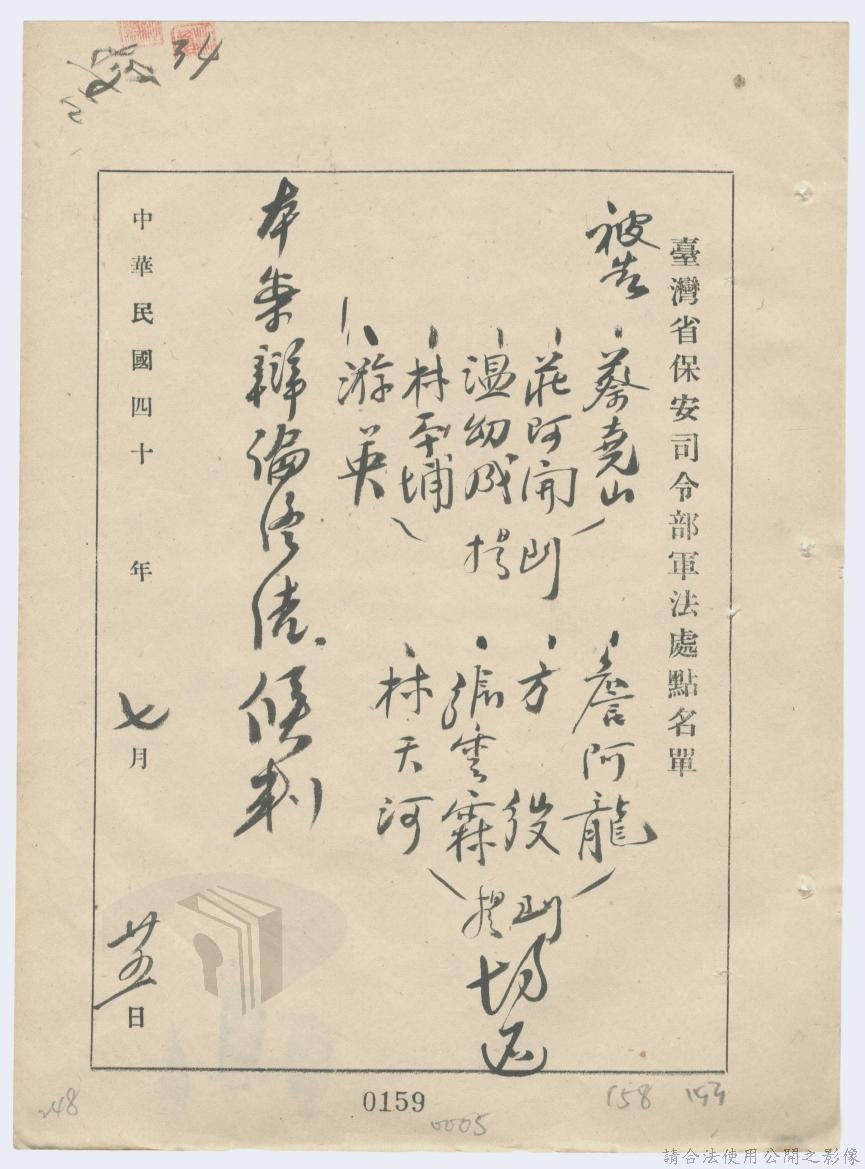 34
臺灣省保安司令部軍法處點名單
被告
蔡堯山
莊阿開
溫幼成
林平埔
游英
提訊
詹阿龍
方役
張雲霖
林天河
提訊
本案辯論終結候判
中華民國四十年七月廿五日
0159
0005
158
248
請合法使用公開之影像